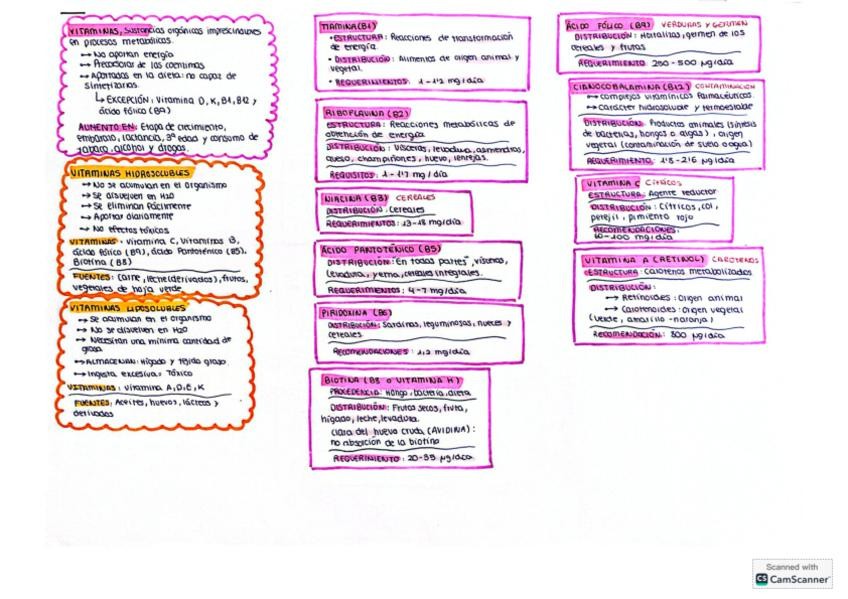 VITAMINAS, Sustancias orgánicas imprescindibles
en procesos metabólicos.
→ No aportan energía
→ Precursoras de las coenzimas
→ Aportadas en la dieta: no capaz de
sintetizarlas.
↳ EXCEPCIÓN: Vitamina D, K, B1, B12 y
ácido fólico (B9)
AUMENTO EN: Etapa de crecimiento,
embarazo, lactancia, 3ª edad y consumo de
tabaco, alcohol y drogas.
VITAMINAS HIDROSOLUBLES
→ No se acumulan en el organismo
→ Se disuelven en H2O
→ Se eliminan fácilmente
→ Aportar diariamente
→ No efectos tóxicos
VITAMINAS: Vitamina C, Vitaminas B,
ácido fólico (B9), ácido Pantoténico (B5),
Biotina (B8)
FUENTES: Carne, leche (derivados), frutos,
vegetales de hoja verde
VITAMINAS LIPOSOLUBLES
→ Se acumulan en el organismo
→ No se disuelven en H2O
→ Necesitan una mínima cantidad de
grasa
→ ALMACENAN: Hígado y tejido graso.
→ Ingesta excesiva: Tóxico
VITAMINAS: Vitamina A, D, E, K
FUENTES: Aceites, huevos, lácteos y
derivados
TIAMINA (B1)
• ESTRUCTURA: Reacciones de transformación
de energía.
• DISTRIBUCIÓN: Alimentos de origen animal y
vegetal.
• REQUERIMIENTOS: 1-1'2 mg/día
RIBOFLAVINA (B2)
ESTRUCTURA: Reacciones metabólicas de
obtención de energía
DISTRIBUCIÓN: Vísceras, levadura, almendras,
queso, champiñones, huevo, lentejas.
REQUISITOS: 1-1'7 mg/día
NIACINA (B3) CEREALES
DISTRIBUCIÓN: Cereales
REQUERIMIENTOS: 13-18 mg/día
ÁCIDO PANTOTÉNICO (B5)
DISTRIBUCIÓN: "En todas partes", vísceras,
levadura, yema, cereales integrales.
REQUERIMIENTOS: 4-7 mg/día
PIRIDOXINA (B6)
DISTRIBUCIÓN: Sardinas, leguminosas, nueces y
cereales
RECOMENDACIONES: 1,2 mg/día
BIOTINA (B8 o VITAMINA H)
PROCEDENCIA: Hongo, bacteria, dieta
DISTRIBUCIÓN: Frutos secos, fruta,
hígado, leche, levadura.
Clara del huevo cruda (AVIDINA):
no absorción de la biotina
REQUERIMIENTO: 20-35 µg/día
ÁCIDO FÓLICO (B9) VERDURAS Y GERMEN
DISTRIBUCIÓN: Hortalizas, germen de los
cereales y frutas
REQUERIMIENTO: 250-500 µg/día
CIANOCOBALAMINA (B12) CONTAMINACIÓN
→ Complejos vitamínicos farmacéuticos
→ Carácter hidrosoluble y termoestable
DISTRIBUCIÓN: Productos animales (síntesis
de bacterias, hongos o algas), origen
vegetal (contaminación de suelo o agua)
REQUERIMIENTO: 1'8-2'6 µg/día
VITAMINA C CÍTRICOS
ESTRUCTURA: Agente reductor
DISTRIBUCIÓN: Cítricos, col,
perejil, pimiento rojo
RECOMENDACIONES:
60-100 mg/día
VITAMINA A (RETINOL) CAROTENOS
ESTRUCTURA: carotenos metabolizados
DISTRIBUCIÓN:
→ Retinoides: Origen animal
→ Carotenoides: Origen vegetal
(verde, amarillo-naranja)
RECOMENDACIÓN: 800 µg/día
Scanned with
CS CamScanner